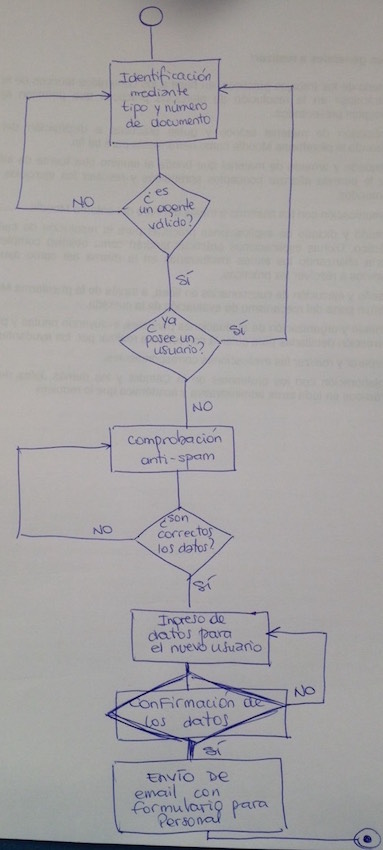 Identificación
mediante
tipo y número
de documento
¿es
un agente
válido?
NO
SÍ
¿ya
posee un
usuario?
SÍ
NO
comprobación
anti-spam
¿son
correctos
los datos?
NO
SÍ
Ingreso de
datos para
el nuevo usuario
Confirmación de
los datos
NO
SÍ
ENVÍO DE
email con
formulario para
Personal